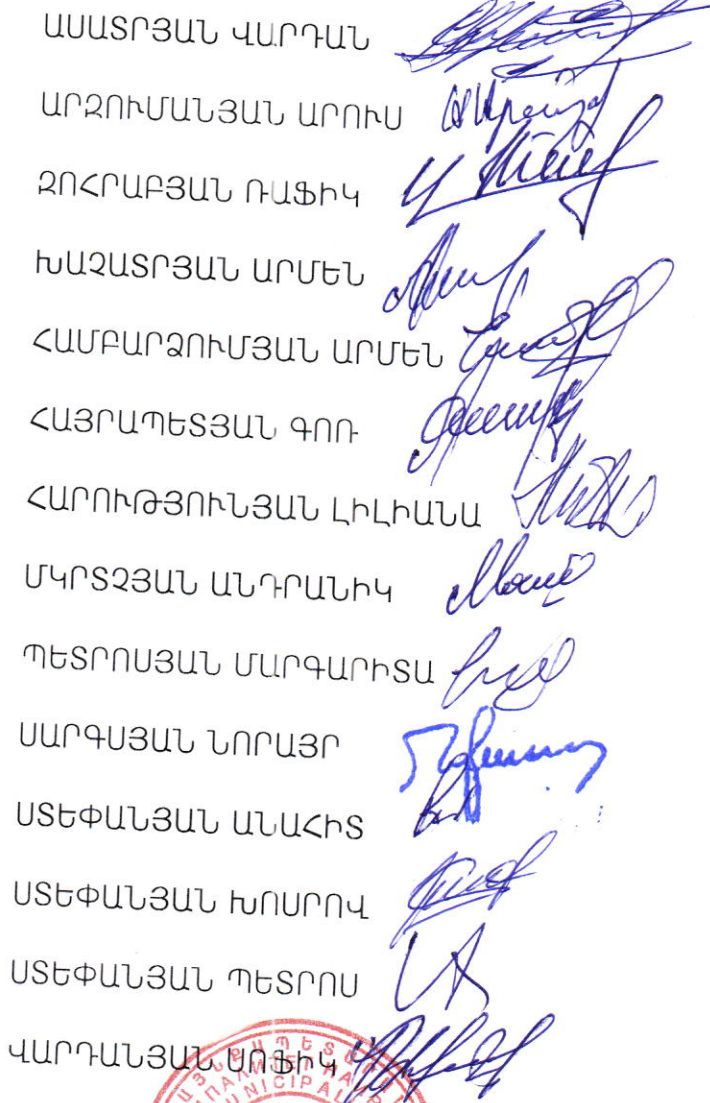 ԱՍԱՏՐՅԱՆ ՎԱՐԴԱՆ
ԱՐԶՈՒՄԱՆՅԱՆ ԱՐՈՒՍ
ԶՈՀՐԱԲՅԱՆ ՌԱՖԻԿ
ԽԱՉԱՏՐՅԱՆ ԱՐՄԵՆ
ՀԱՄԲԱՐՁՈՒՄՅԱՆ ԱՐՄԵՆ
ՀԱՅՐԱՊԵՏՅԱՆ ԳՈՌ
ՀԱՐՈՒԹՅՈՒՆՅԱՆ ԼԻԼԻԱՆԱ
ՄԿՐՏՉՅԱՆ ԱՆԴՐԱՆԻԿ
ՊԵՏՐՈՍՅԱՆ ՄԱՐԳԱՐԻՏԱ
ՍԱՐԳՍՅԱՆ ՆՈՐԱՅՐ
ՍՏԵՓԱՆՅԱՆ ԱՆԱՀԻՏ
ՍՏԵՓԱՆՅԱՆ ԽՈՍՐՈՎ
ՍՏԵՓԱՆՅԱՆ ՊԵՏՐՈՍ
ՎԱՐԴԱՆՅԱՆ ՍՈՖԻԿ